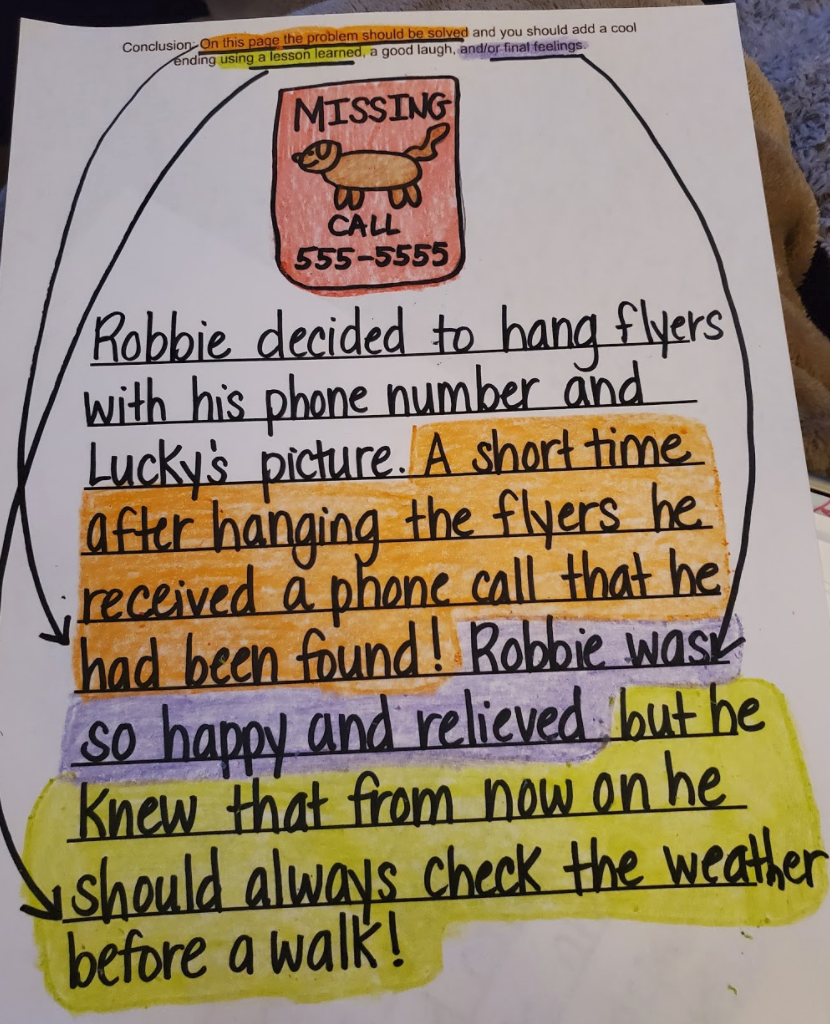 Conclusion- On this page the problem should be solved and you should add a cool
ending using a lesson learned, a good laugh, and/or final feelings.
MISSING
CALL
555-5555
Robbie decided to hang flyers
with his phone number and
Lucky's picture. A short time
after hanging the flyers he
received a phone call that he
had been found! Robbie was
so happy and relieved but he
knew that from now on he
should always check the weather
before a walk!